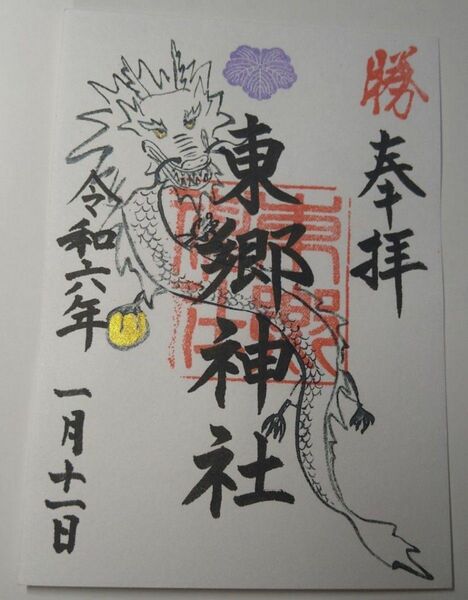 勝
奉拝
東郷神社
東郷神社
令和六年
一月十一日